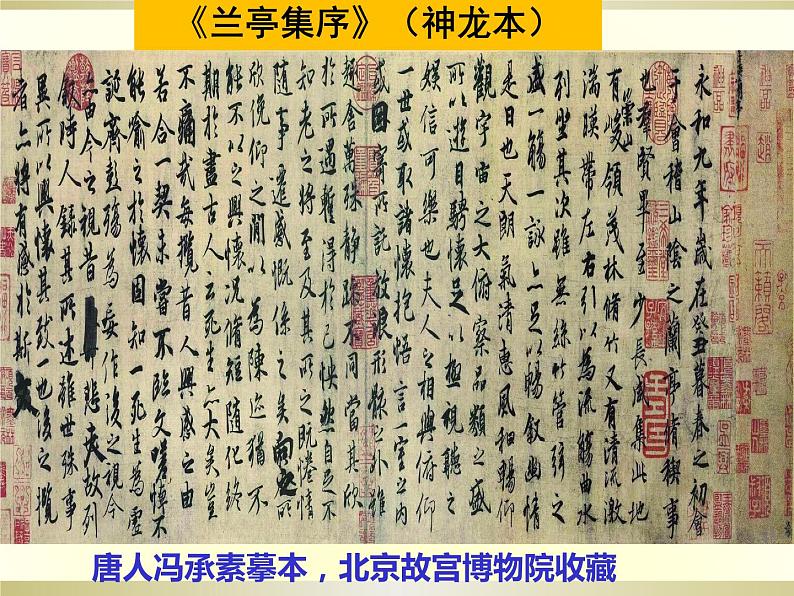 《兰亭集序》（神龙本）
永和九年歲在癸丑暮春之初會
于會稽山陰之蘭亭脩稧事
也羣賢畢至少長咸集此地
有崇山峻領茂林脩竹又有清流激
湍暎帶左右引以為流觴曲水
列坐其次雖無絲竹管弦之
盛一觴一詠亦足以暢敘幽情
是日也天朗氣清惠風和暢仰
觀宇宙之大俯察品類之盛
所以遊目騁懷足以極視聽之
娛信可樂也夫人之相與俯仰
一世或取諸懷抱悟言一室之內
或因寄所託放浪形骸之外雖
趣舍萬殊靜躁不同當其欣
於所遇蹔得於己怏然自足不
知老之將至及其所之既惓情
隨事遷感慨係之矣向之所
欣俛仰之間以為陳迹猶不
能不以之興懷況脩短隨化終
期於盡古人云死生亦大矣豈
不痛哉每攬昔人興感之由
若合一契未嘗不臨文嗟悼不
能喻之於懷固知一死生為虛
誕齊彭殤為妄作後之視今
亦由今之視昔悲夫故列
敘時人錄其所述雖世殊事
異所以興懷其致一也後之攬
者亦將有感於斯文
唐人冯承素摹本，北京故宫博物院收藏